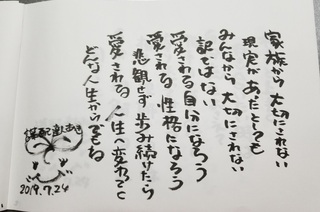 家族から 大切にされない
現実があったとしても
みんなから 大切にされない
訳ではない
愛される自分になろう
愛される 性格になろう
悲観せず 歩み続けたら
愛される 人生へ変わってく
どんな人生からでもね
2019.7.24